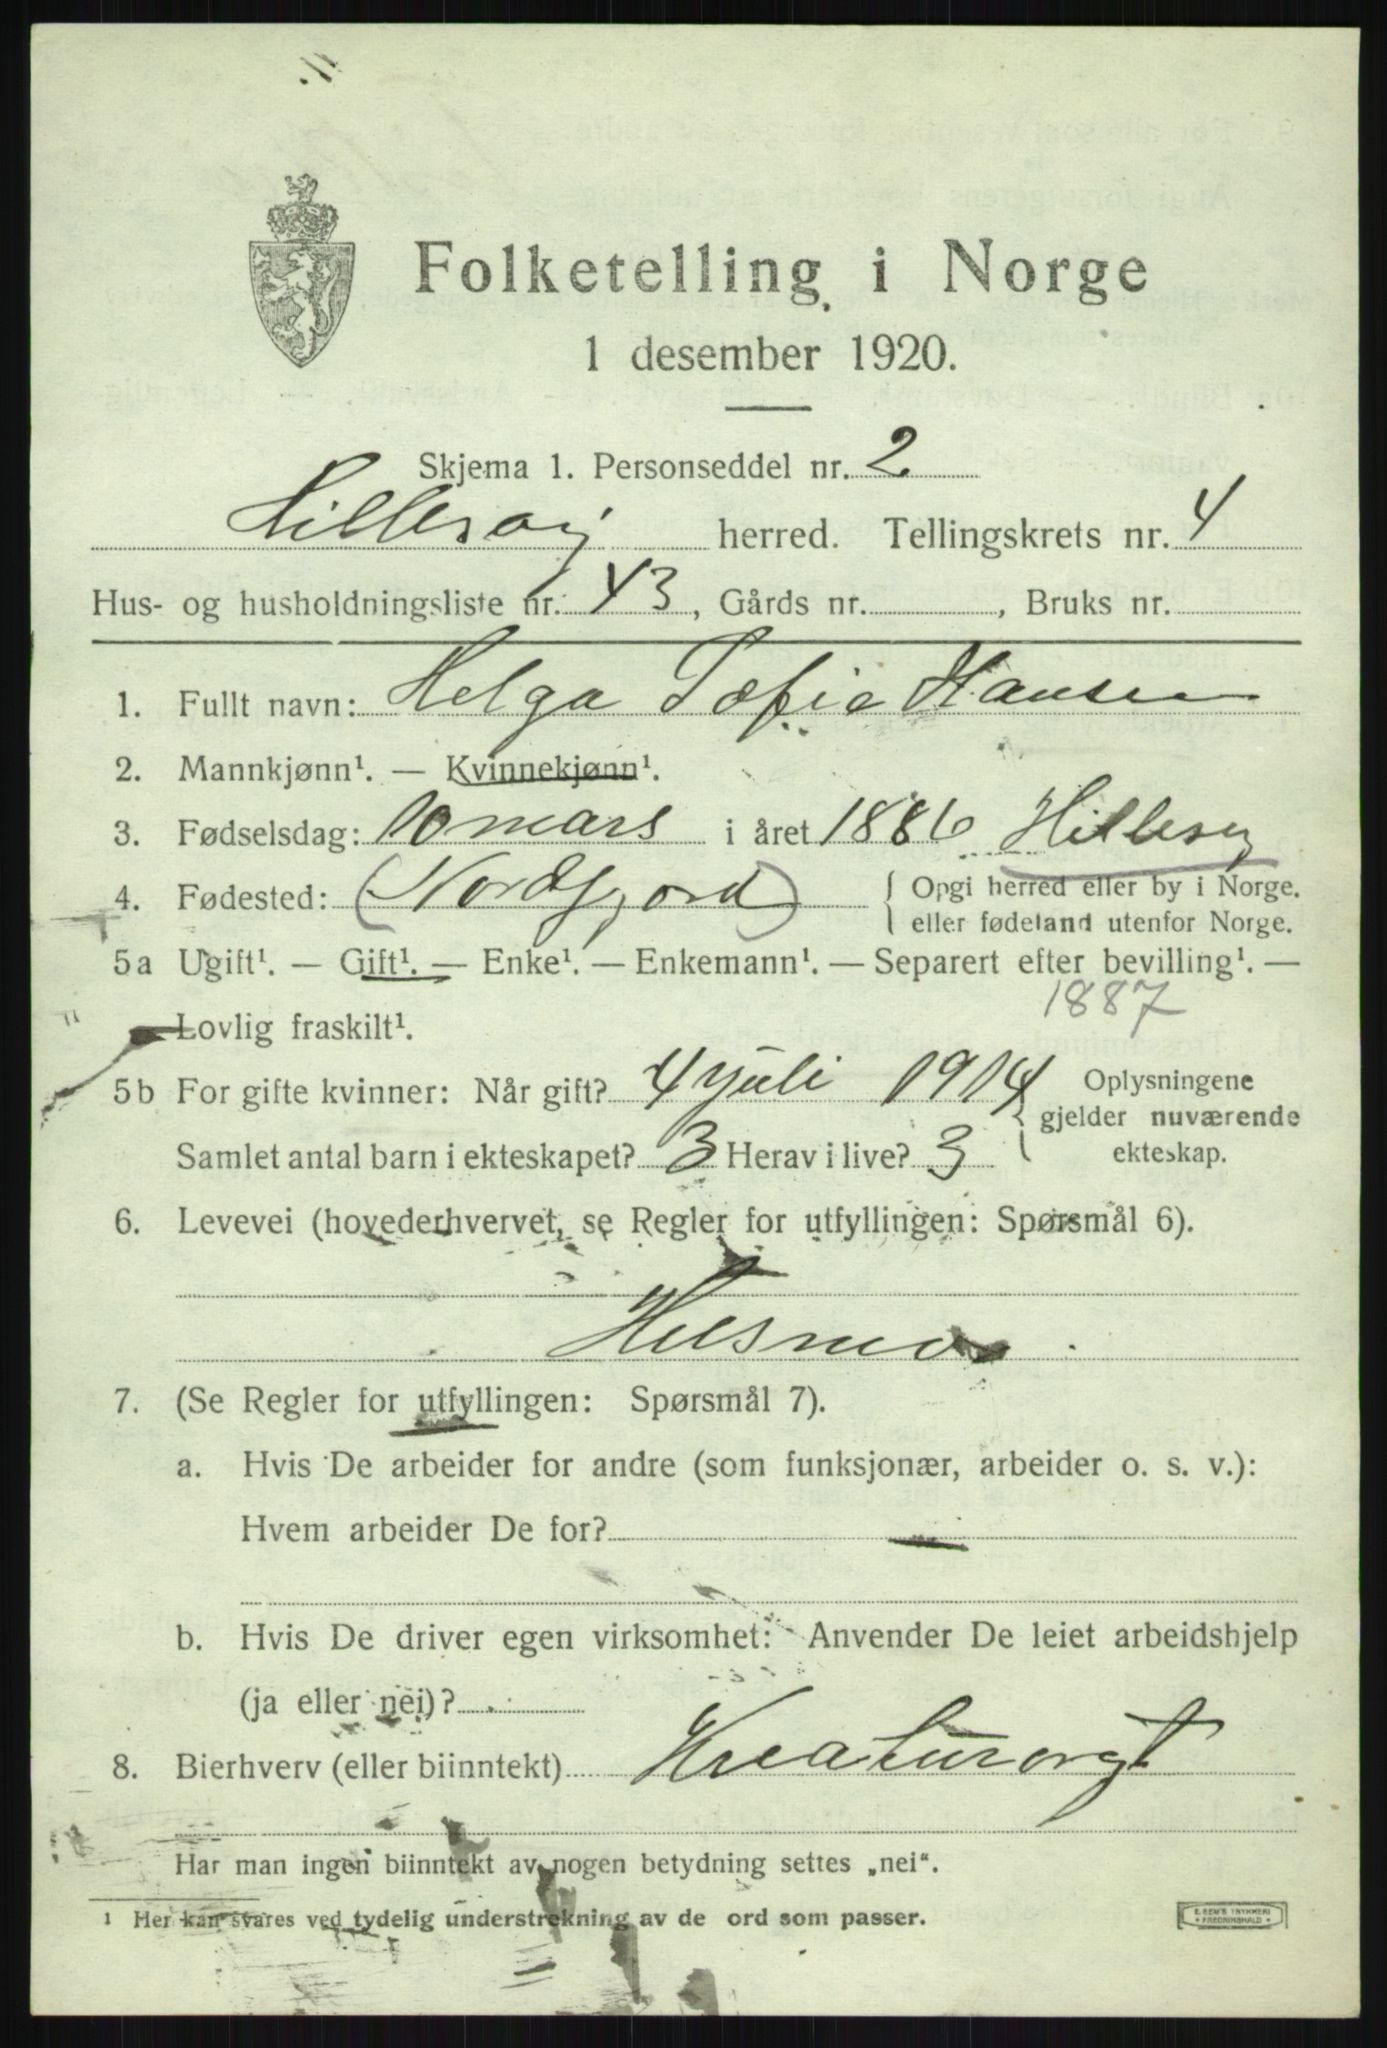 Folketelling i Norge
1 desember 1920.
Skjema 1. Personseddel nr. 2
Hillesøy herred. Tellingskrets nr. 4
Hus- og husholdningsliste nr. 43, Gårds nr. , Bruks nr.
1. Fullt navn: Helga Tofie Hansen
2. Mannkjønn¹. — Kvinnekjønn¹.
3. Fødselsdag: 10 mars i året 1886 Hillesøy
4. Fødested: (Nordfjord) { Opgi herred eller by i Norge.
eller fødeland utenfor Norge.
5a Ugift¹. — Gift¹. — Enke¹. — Enkemann¹. — Separert efter bevilling¹. —
1887
Lovlig fraskilt¹.
5b For gifte kvinner: Når gift? 4 juli 1914 { Oplysningene
gjelder nuværende
Samlet antal barn i ekteskapet? 3 Herav i live? 3 ekteskap.
6. Levevei (hovederhvervet, se Regler for utfyllingen: Spørsmål 6).
Husmor
7. (Se Regler for utfyllingen: Spørsmål 7).
a. Hvis De arbeider for andre (som funksjonær, arbeider o. s. v.):
Hvem arbeider De for? —
b. Hvis De driver egen virksomhet: Anvender De leiet arbeidshjelp
(ja eller nei)?
8. Bierhverv (eller biinntekt) Kreaturorgt
Har man ingen biinntekt av nogen betydning settes „nei“.
1 Her kan svares ved tydelig understrekning av de ord som passer.
E. SEM'S TRYKKERI
FREDRIKSHALD